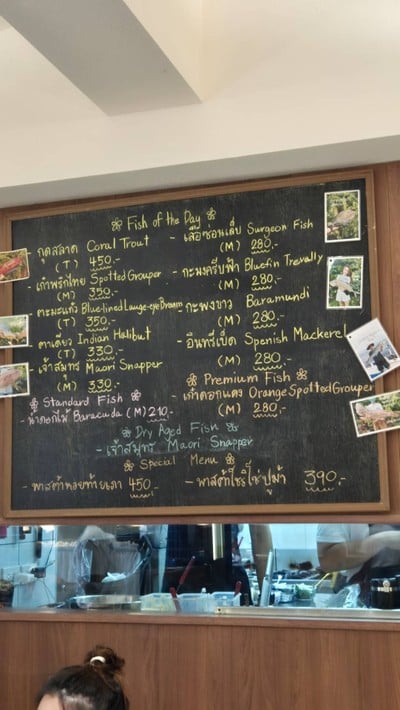 Fish of the Day
กุดสลาด Coral Trout
(T) 450.-
เก๋าพริกไทย Spotted Grouper
(M) 350.-
ตะมะแก้ว Blue-lined Lauge-eye Bream
(T) 350.-
ตาเดียว Indian Halibut
(T) 330.-
- เจ้าสมุทร Maori Snapper
(M) 330.-
- เสือซ่อนเล็บ Surgeon Fish
(M) 280.-
- กะมงครีบฟ้า Bluefin Trevally
(M) 280.-
- กะพงขาว Baramundi
(M) 280.-
- อินทรีเบ็ด Spenish Mackerel
(M) 280.-
Standard Fish
- น้ำดอกไม้ Baracuda (M) 210.-
Premium Fish
- เก๋าดอกแดง Orange Spotted Grouper
(M) 280.-
Dry Aged Fish
- เจ้าสมุทร Maori Snapper
Special Menu
- พาสต้าหอยท้ายเภา 450.-
- พาสต้าไข่ปูม้า 390.-